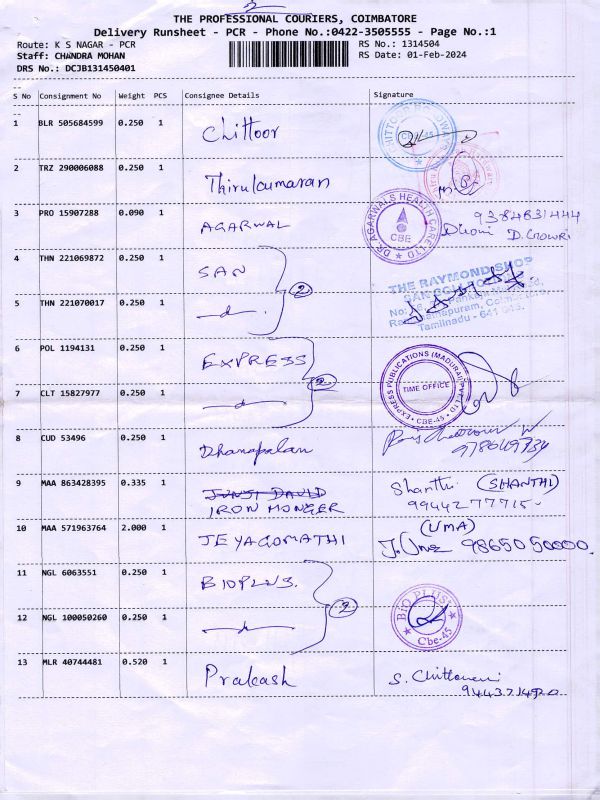 THE PROFESSIONAL COURIERS, COIMBATORE
Delivery Runsheet - PCR - Phone No.:0422-3505555 - Page No.:1
Route: K S NAGAR - PCR
RS No.: 1314504
Staff: CHANDRA MOHAN
RS Date: 01-Feb-2024
DRS No.: DCJB131450401
S No Consignment No Weight PCS Consignee Details Signature
1 BLR 505684599 0.250 1 Chittoor
2 TRZ 290006088 0.250 1 Thirukumaran
3 PRO 15907288 0.090 1 AGARWAL
DR. AGARWALS HEALTH CARE LTD
CBE
9384631444
D. GOWRI
4 THN 221069872 0.250 1 SAN
2
THE RAYMOND SHOP
5 THN 221070017 0.250 1 -d-
Tamilnadu - 641
6 POL 1194131 0.250 1 EXPRESS
2
EXPRESS PUBLICATIONS (MADURAI) PVT LTD
TIME OFFICE
CBE-45
7 CLT 15827977 0.250 1 -d-
8 CUD 53496 0.250 1 Dhanapalan
9 MAA 863428395 0.335 1 JUNSI DAVID
IRON MONGER
Shanthi (SHANTHI)
9944277715
10 MAA 571963764 2.000 1 JEYAGOMATHI
(UMA)
J. Uma 9865050000.
11 NGL 6063551 0.250 1 BIOPLUS.
2
BIO PLUS
Cbe-45
12 NGL 100050260 0.250 1 -d-
13 MLR 40744481 0.520 1 Prakash